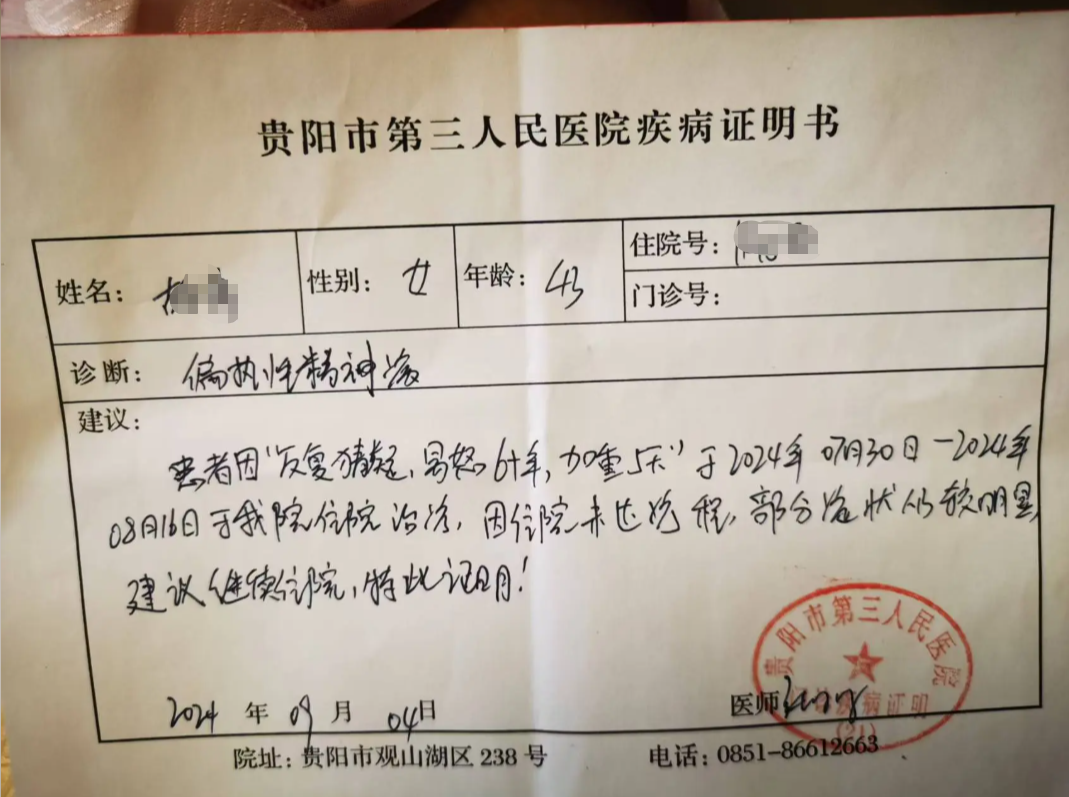 贵阳市第三人民医院疾病证明书
姓名：
性别：女
年龄：43
住院号：
门诊号：
诊断：偏执性精神病
建议：
患者因"反复猜疑，易怒6+年，加重5天"于2024年07月30日-2024年
08月16日于我院住院治疗，因住院未达疗程，部分症状仍较明显，
建议继续住院，特此证明！
2024年09月04日
医师
贵阳市第三人民医院
疾病证明
院址：贵阳市观山湖区238号
电话：0851-86612663